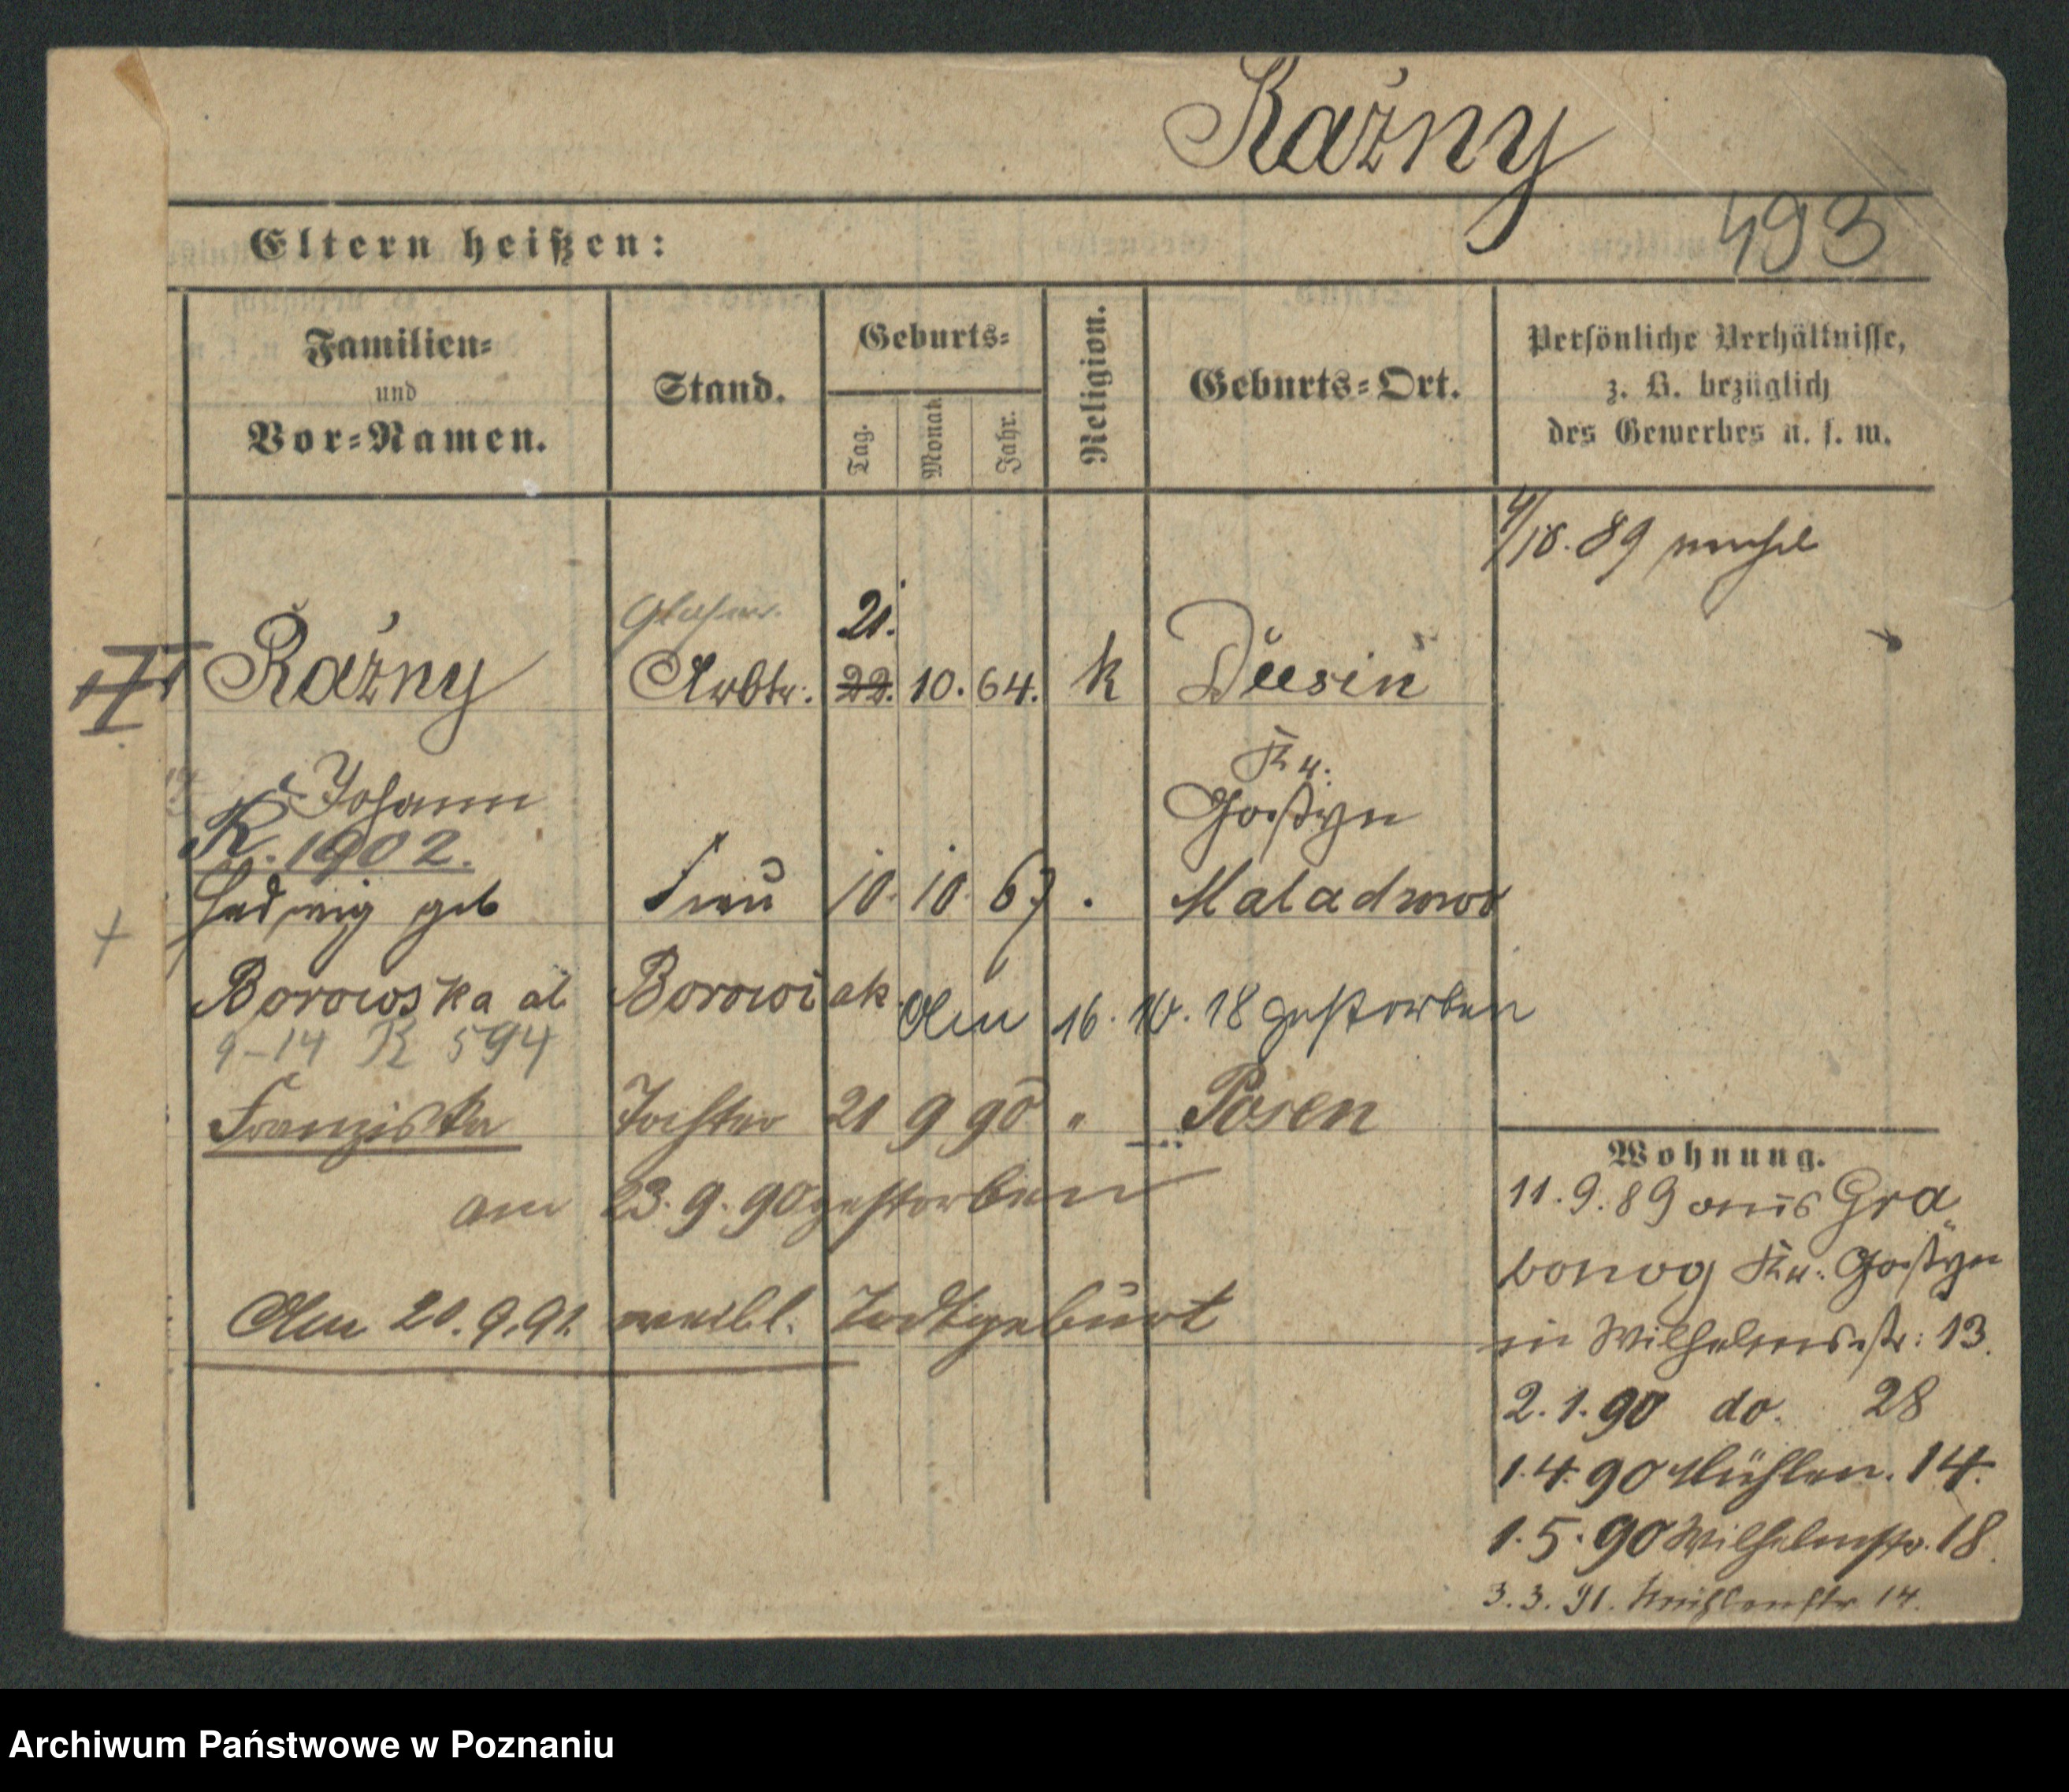 Raźny
493
Eltern heißen:
Familien-
und
Vor-Namen.
Stand.
Geburts-
Tag.
Monat.
Jahr.
Religion.
Geburts-Ort.
Persönliche Verhältnisse,
z. B. bezüglich
des Gewerbes u. s. w.
89
21.
Raźny Arbtr. 22. 10. 64. k Dusin
Kr.
Johann Gostyn
K. 1902.
Hedwig geb Frau 10. 10. 67 .
Borowska al Borowiak Am 16. 10. 18 gestorben
9-14 K 594
Franziska Tochter 21 9 90 " Posen
am 23. 9. 90 gestorben
Am 20. 9. 91 weibl. Todtgeburt
Wohnung.
11. 9. 89 aus Gra
bonog Kr. Gostyn
in Wilhelmsstr: 13.
2. 1. 90 do. 28
1. 4. 90 Mühlen. 14.
1. 5. 90 Wilhelmstr. 18.
3. 3. 91. Mühlenstr 14.
Archiwum Państwowe w Poznaniu